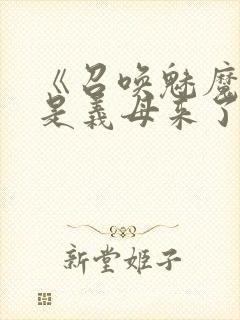 《召唤魅魔
是義母来了
新堂姬子